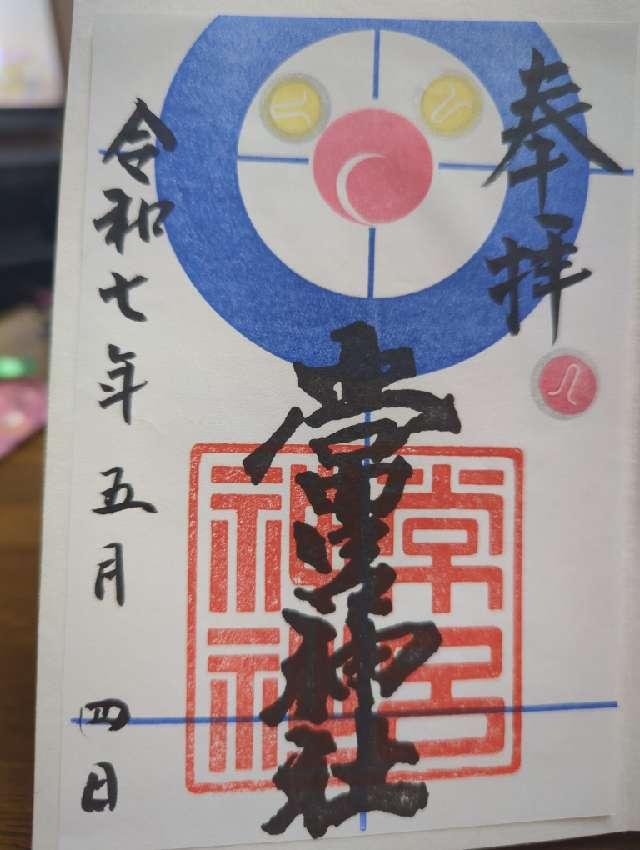 奉拝
常呂神社
常呂
神社
令和七年 五月 四日